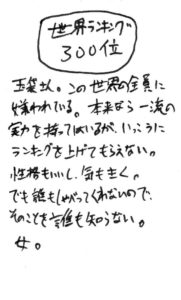 世界ランキング
300位
玉袋さん。この世界の全員に
嫌われている。本来なら一流の
実力を持ってはいるが、いっこうに
ランキングを上げてもらえない。
性格もいいし、気も主く。
でも誰もしゃがってくれないので、
そのことを誰も知らない。
女。